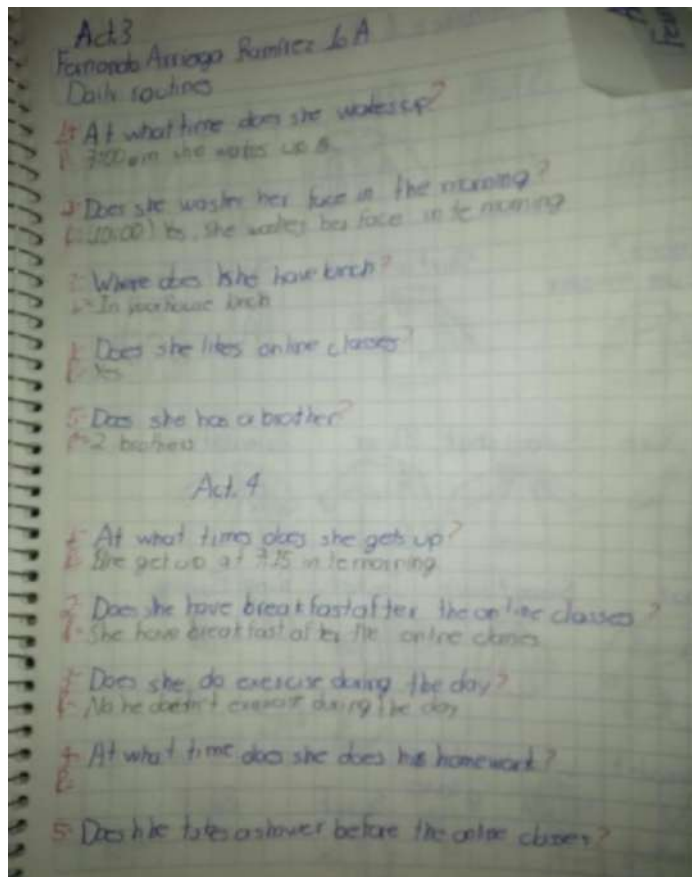 Act3
Fernando Arriaga Ramirez 6 A
Daily routines
1- At what time does she wakes up?
R- 7:00 am she wakes up
2- Does she washes her face in the morning?
R- (10:00) Yes, she washes her face in te morning
3- Where does she have lunch?
R- In house lunch
4- Does she likes online classes?
R- Yes
5- Does she has a brother?
R- 2 brothers
Act. 4
1- At what time does she gets up?
R- She get up at 7:15 in te morning
2- Does she have breakfast after the online classes?
R- She have breakfast after the online classes
3- Does she do exercise during the day?
R- No he doesn't exercise during the day
4- At what time does she does his homework?
R-
5- Does she takes a shower before the online classes?